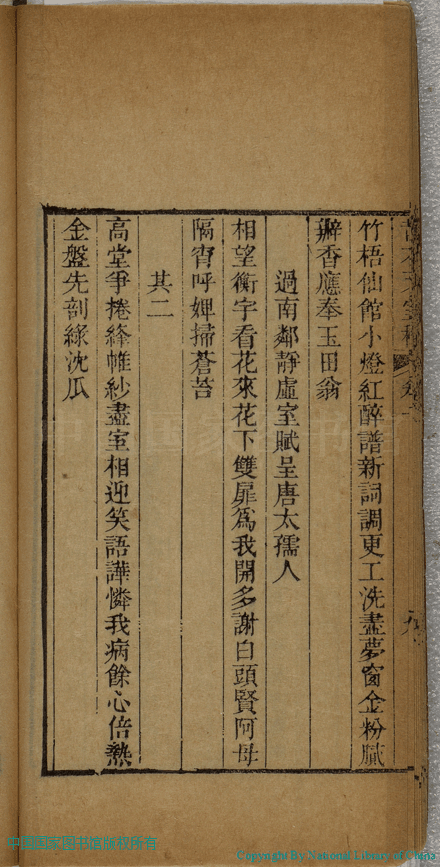 竹梧仙館小燈紅醉譜新詞調更工洗盡夢窗金粉膩
瓣香應奉玉田翁
過南鄰靜虛室賦呈唐太孺人
相望衡宇看花來花下雙扉為我開多謝白頭賢阿母
隔宵呼婢掃蒼苔
其二
高堂爭捲絳帷紗盡室相迎笑語譁憐我病餘心倍熱
金盤先剖綠沈瓜
中国国家图书馆版权所有
Copyright By National Library of China